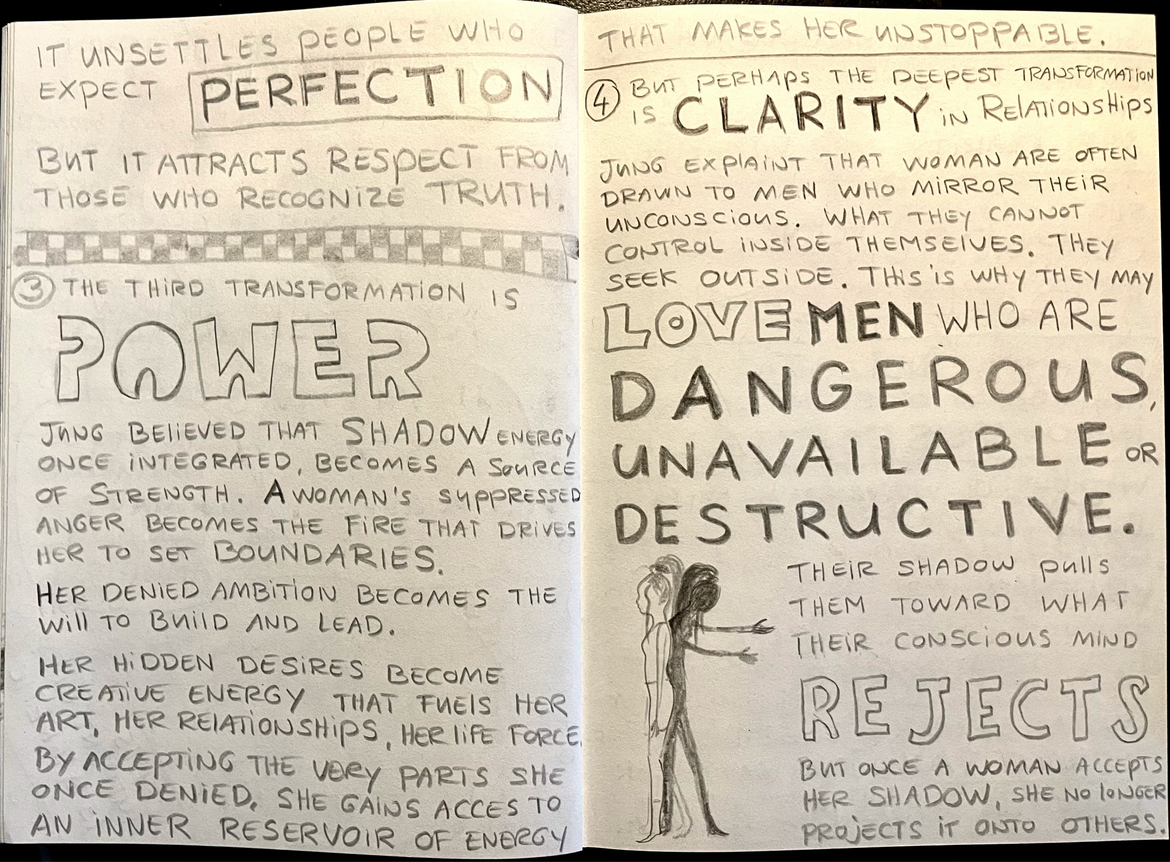 IT UNSETTLES PEOPLE WHO
EXPECT PERFECTION
BUT IT ATTRACTS RESPECT FROM
THOSE WHO RECOGNIZE TRUTH.
③ THE THIRD TRANSFORMATION IS
POWER
JUNG BELIEVED THAT SHADOW ENERGY
ONCE INTEGRATED, BECOMES A SOURCE
OF STRENGTH. A WOMAN'S SYPPRESSED
ANGER BECOMES THE FIRE THAT DRIVES
HER TO SET BOUNDARIES.
HER DENIED AMBITION BECOMES THE
WILL TO BUILD AND LEAD.
HER HIDDEN DESIRES BECOME
CREATIVE ENERGY THAT FUELS HER
ART, HER RELATIONSHIPS, HER LIFE FORCE.
BY ACCEPTING THE VERY PARTS SHE
ONCE DENIED, SHE GAINS ACCES TO
AN INNER RESERVOIR OF ENERGY
THAT MAKES HER UNSTOPPABLE.
④ BUT PERHAPS THE DEEPEST TRANSFORMATION
IS CLARITY IN RELATIONSHIPS
JUNG EXPLAINT THAT WOMAN ARE OFTEN
DRAWN TO MEN WHO MIRROR THEIR
UNCONSCIOUS. WHAT THEY CANNOT
CONTROL INSIDE THEMSELVES. THEY
SEEK OUTSIDE. THIS IS WHY THEY MAY
LOVE MEN WHO ARE
DANGEROUS,
UNAVAILABLE OR
DESTRUCTIVE.
THEIR SHADOW PULLS
THEM TOWARD WHAT
THEIR CONSCIOUS MIND
REJECTS
BUT ONCE A WOMAN ACCEPTS
HER SHADOW, SHE NO LONGER
PROJECTS IT ONTO OTHERS.